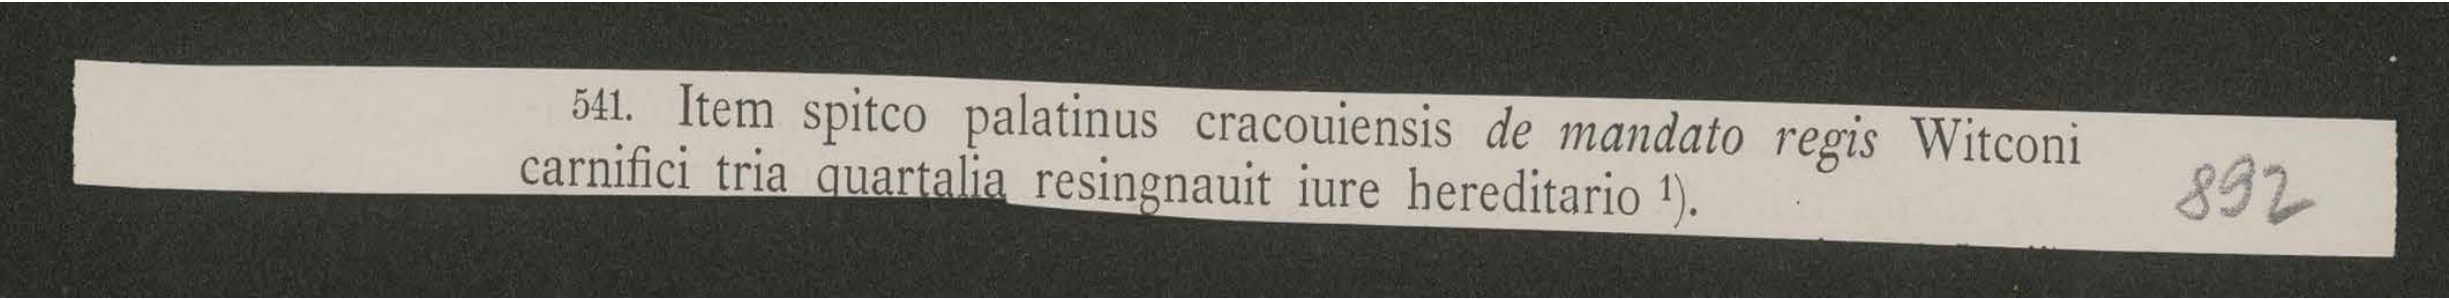 541. Item spitco palatinus cracouiensis de mandato regis Witconi
carnifici tria quartalia resingnauit iure hereditario ¹).
892